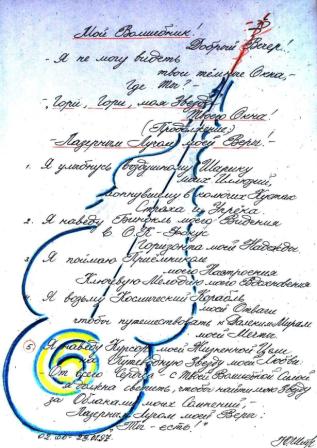 Мой Волшебник!
Добрый Вечер!
- Я не могу видеть
твои тёмные Окна,-
Где Ты? -
- "Гори, Гори, моя Звезда
Твоего Окна!
(Продолжение)
- Лазерным Лучом моей Веры! -
1. Я улыбнусь Воздушному Шарику
моих Иллюзий,
лопнувшему в колючих Кустах
Страха и Упрёка
2. Я наведу Бинокль моего Видения
в О.К. - Фокус
Горизонта моей Надежды
3. Я поймаю Приёмником
моего Настроения
Ключевую Мелодию моего Вдохновения
4. Я возьму Космический Корабль
моей Отваги
чтобы путешествовать к Далёким Мирам
моей Мечты.
5. Я наведу Курсор моей Жизненной Цели
на Путеводную Звезду моей Любви.
От всего Сердца - с Твоей Волшебной Силой
я должна светить, чтобы найти мою Звезду
за Облаками моих Сомнений, -
Лазерным Лучом моей Веры:
"Ты - есть!"